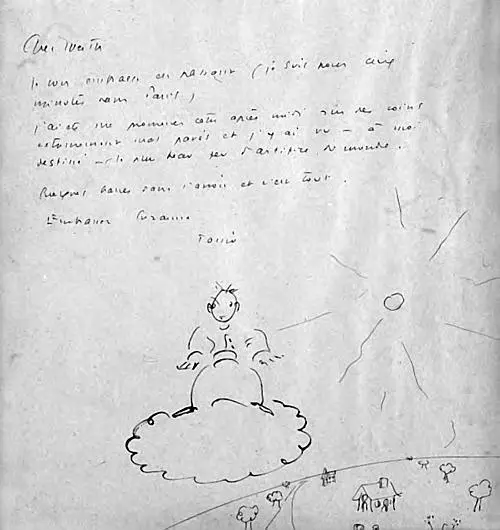 Cher Werth
Je vous embrasse en passant (je suis pour cinq
minutes dans Paris)
J'ai été me promener cet après midi sur des coins
extrêmement mal pavés et j'y ai vu — à moi
destiné — le plus beau feu d'artifice du monde.
Quelques balles dans l'avion et c'est tout.
Embrassez Suzanne
Tonio